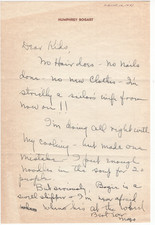 HUMPHREY BOGART
Dear Kids,
No Hairdos - no nails
done - no new clothes - I'm
strictly a sailor's wife from
now on!!
I'm doing all right with
my cooking - but made one
mistake - I put enough
noodles in the soup for 20
people.
But seriously, Bogie is a
swell skipper - I'm never afraid
when he's at the wheel
Best Love